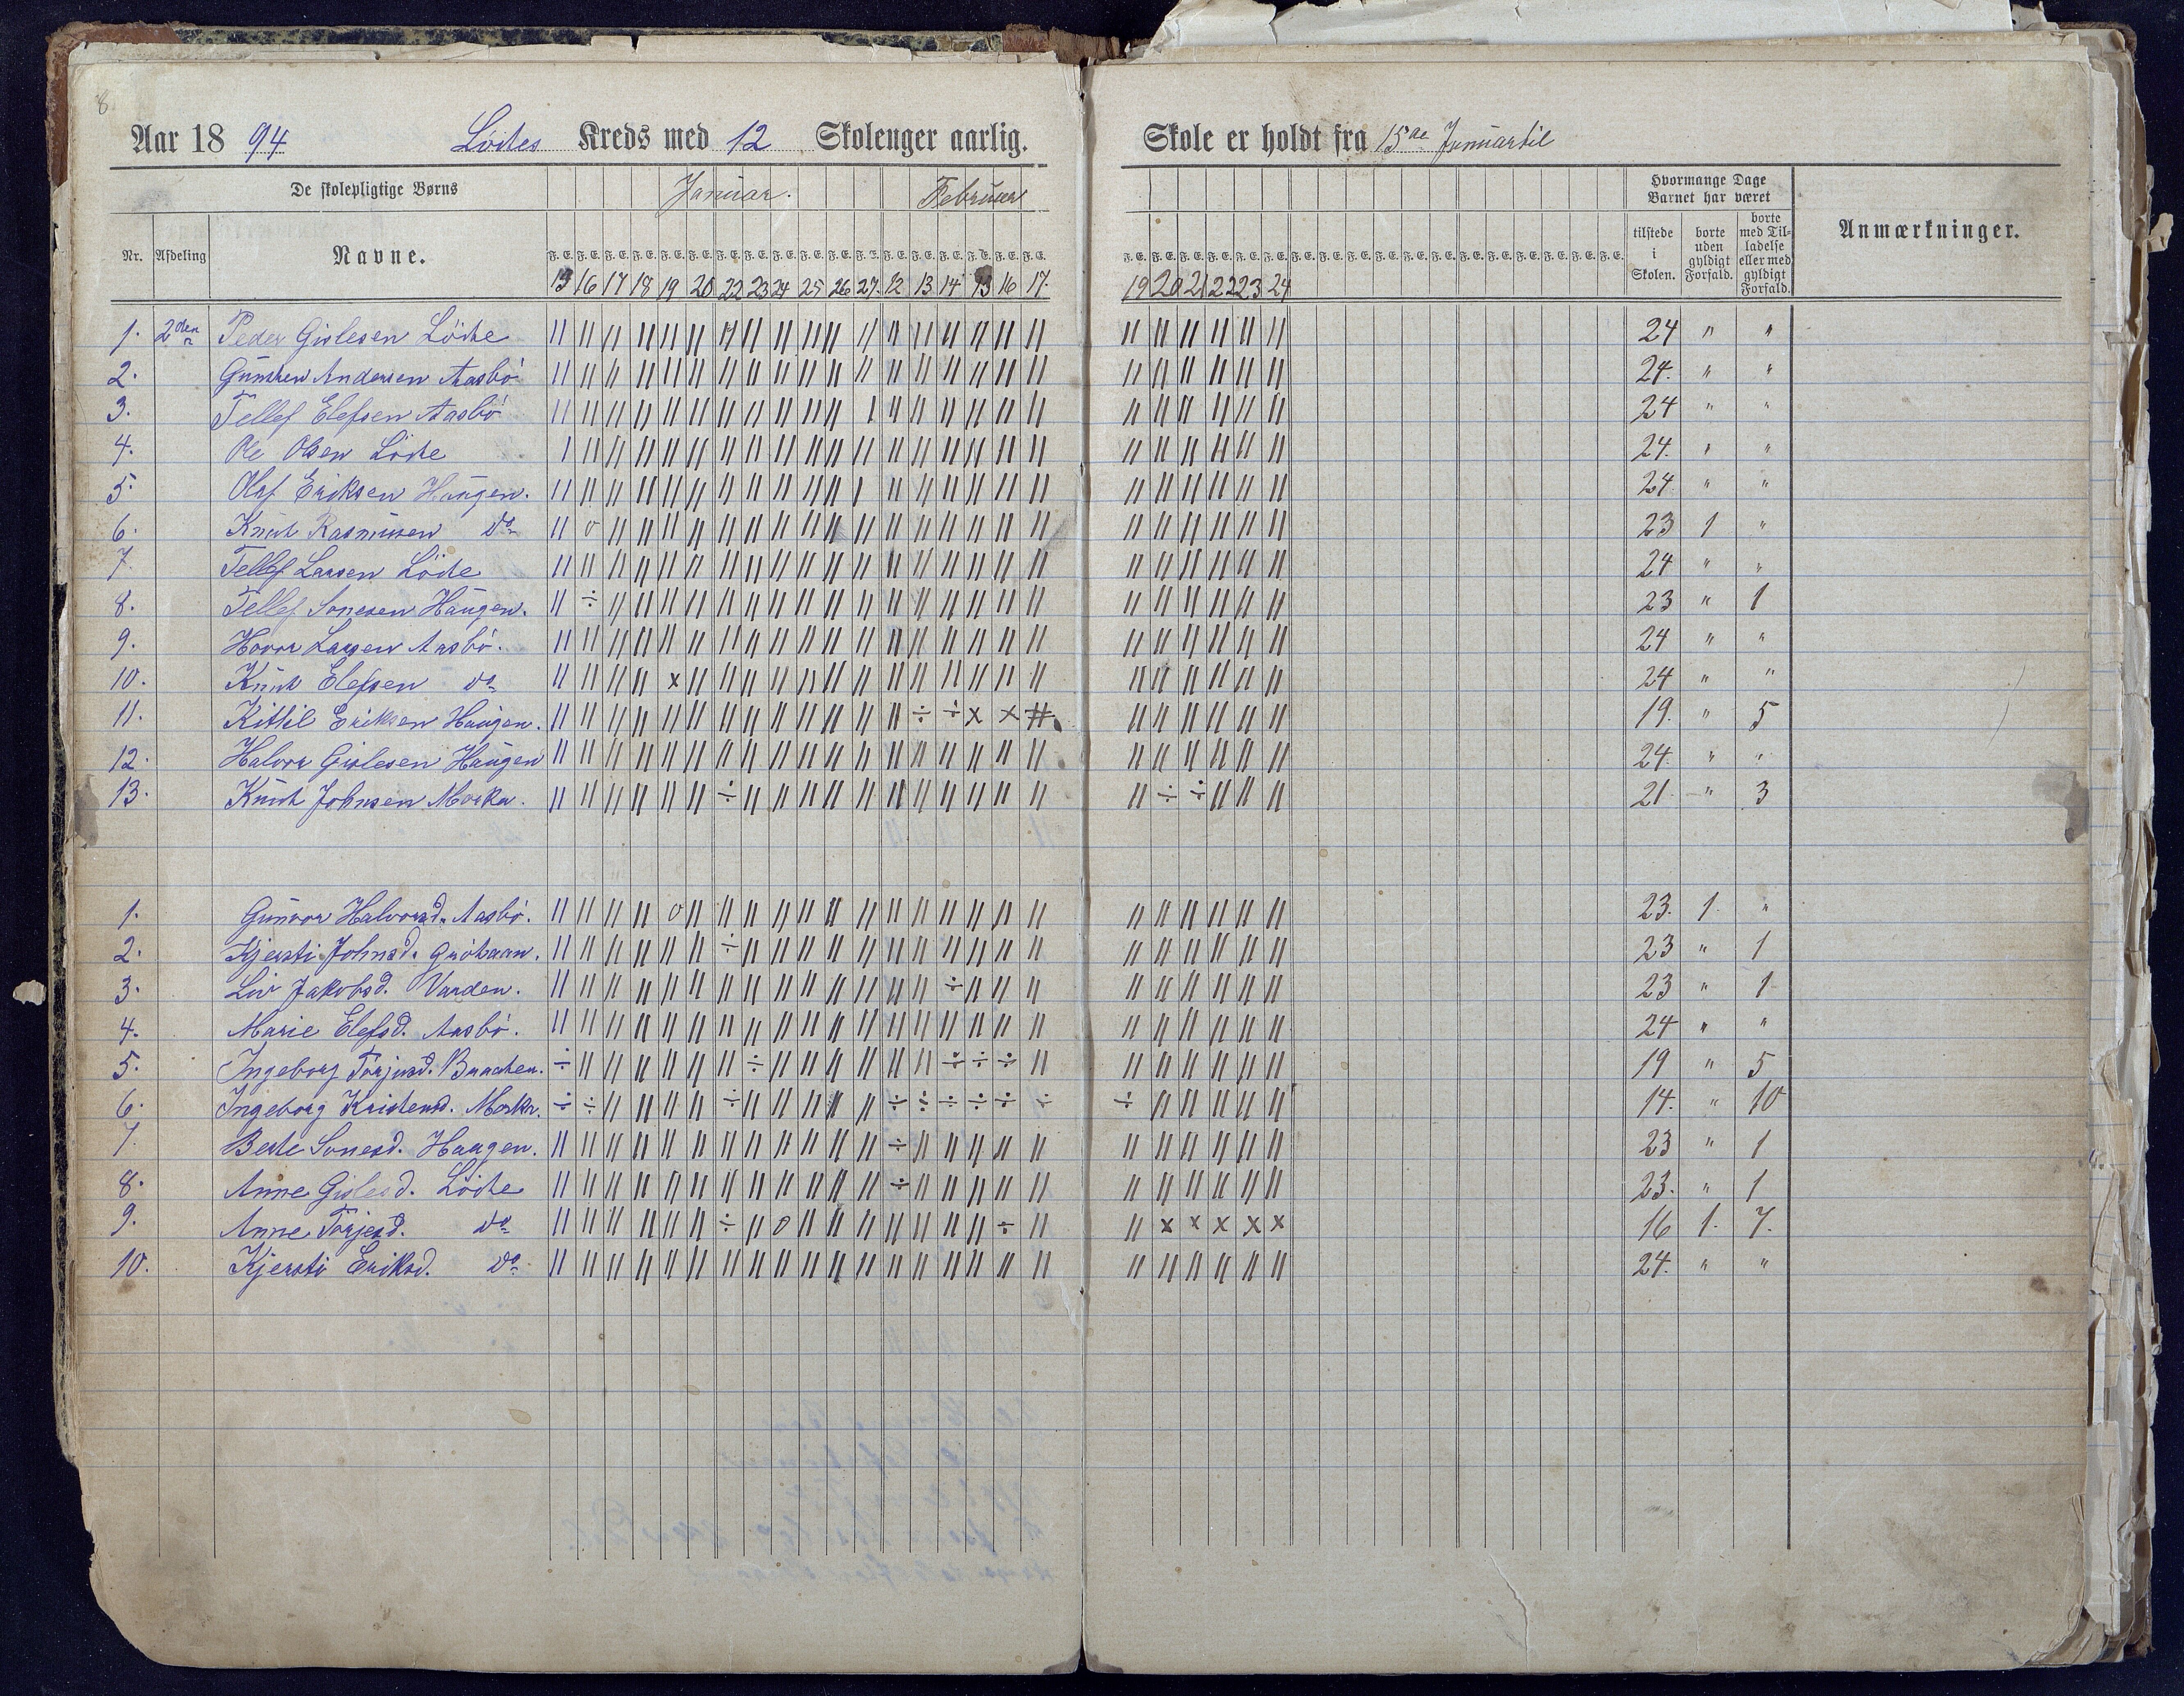 8
Aar 1894 Löites Kreds med 12 Skolenger aarlig. Skole er holdt fra 15de Januar til
De skolepligtige Børns Januar. Februar Hvormange Dage Barnet har været
Nr. Afdeling Navne. tilstede i Skolen. borte uden gyldigt Forfald. borte med Tilladelse eller med gyldigt Forfald. Anmærkninger.
F. E. F. E. F. E. F. E. F. E. F. E. F. E. F. E. F. E. F. E. F. E. F. E. F. E. F. E. F. E. F. E. F. E. F. E.
15 16 17 18 19 20 22 23 24 25 26 27. 12 13 14 15 16 17. 19 20 21 22 23 24
1. 2den Peder Gislesen Löite 24 " "
2. Gunsten Andersen Aasbö 24. " "
3. Tellef Elefsen Aasbö 24 " "
4. Ole Olsen Löite 24. " "
5. Olaf Eriksen Haugen. 24 " "
6. Knut Rasmusen do 23 1 "
7. Tellef Larsen Löite 24 " "
8. Tellef Sonesen Haugen. 23 " 1
9. Hovor Larsen Aasbö. 24 " "
10. Knut Elefsen do 24 " "
11. Kittil Eriksen Haugen. 19. " 5
12. Halvor Gislesen Haugen 24. " "
13. Knut Johnsen Morka. 21 " 3
1. Gunvor Halvorsd. Aasbö. 23. 1. "
2. Kjersti Johnsd. 23 " 1
3. Liv Jakobsd. Varden. 23 " 1
4. Marie Elefsd. Aasbö. 24 " "
5. Ingeborg Torjusd. 19 " 5
6. Ingeborg Kristensd. Morka. 14. " 10
7. Berte Sonesd. Haugen. 23 " 1
8. Anne Gislesd. Löite 23. " 1
9. Anne Torjesd. do 16 1. 7.
10. Kjersti Eriksd. do 24. " "